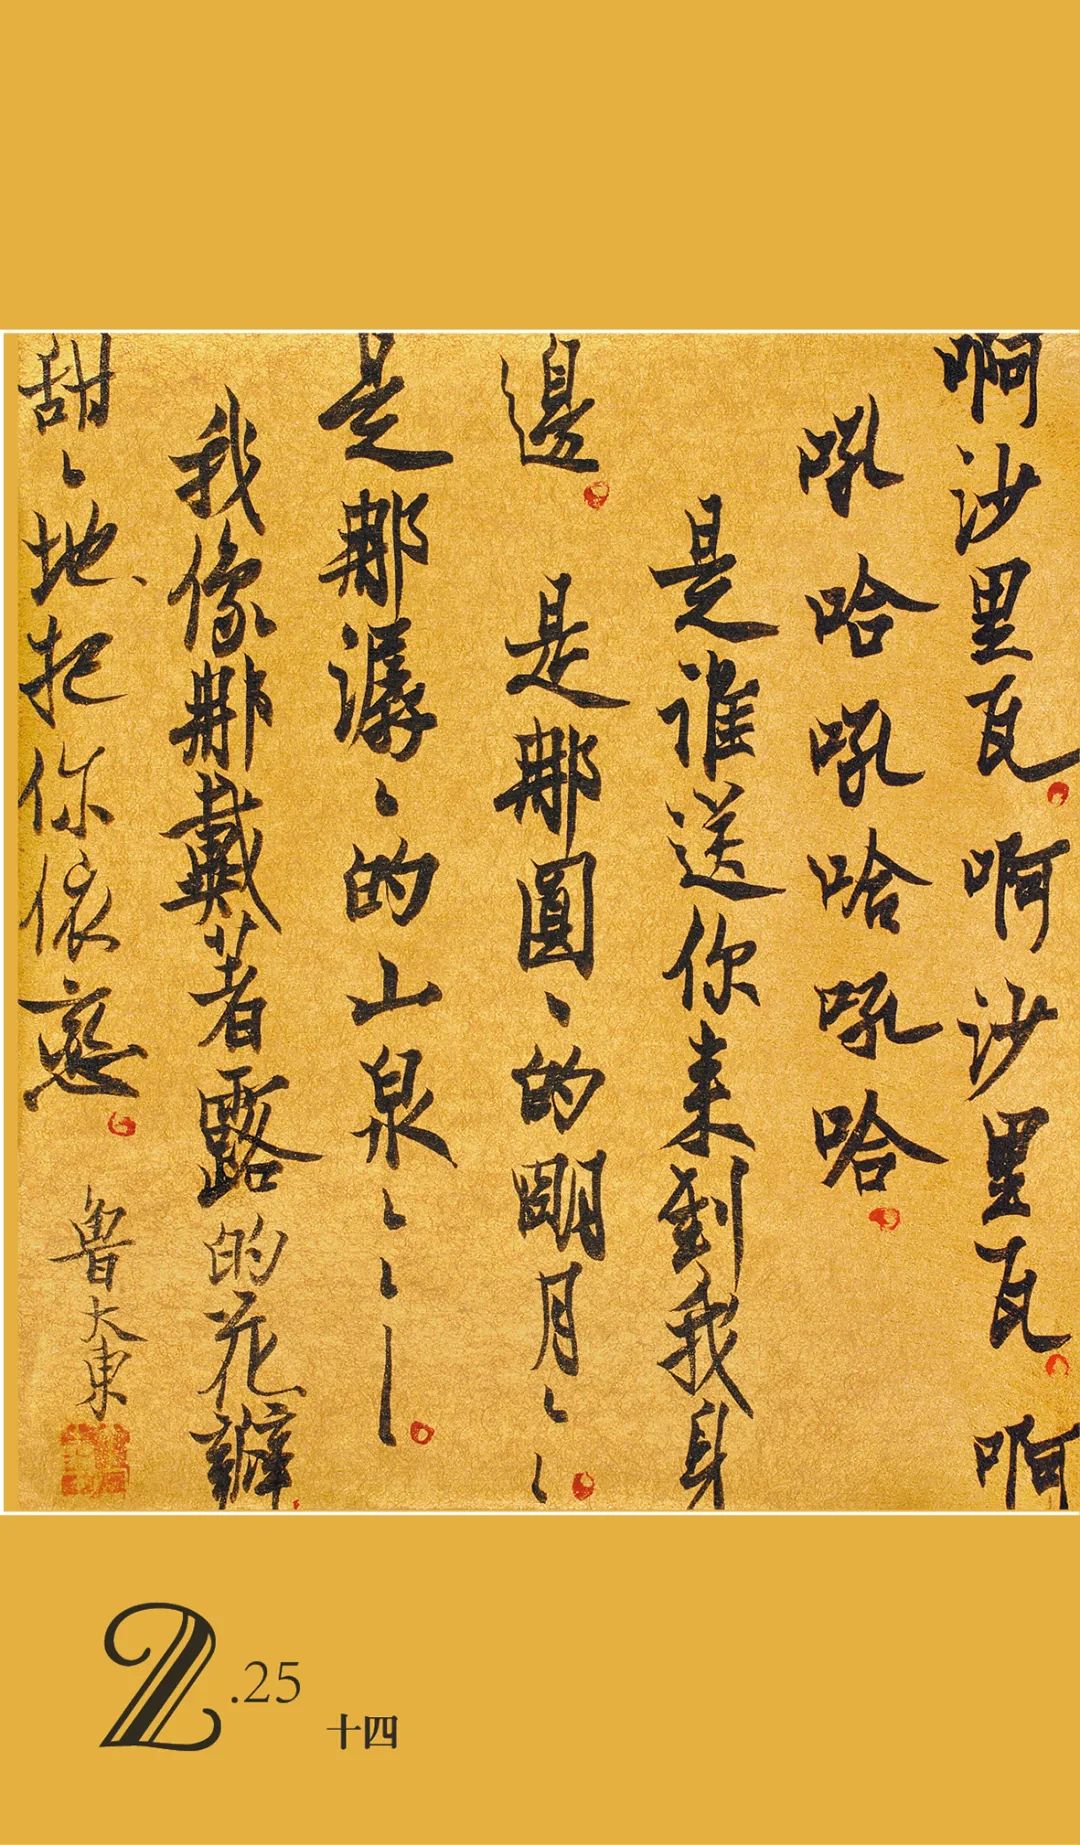 啊沙里瓦啊沙里瓦啊
吼哈吼哈吼哈
是谁送你来到我身
邊是那圓〻的朙月〻〻
是那潺〻的山泉〻〻〻
我像那戴着露的花瓣
甜〻地把你依恋
魯大東
2.25
十四